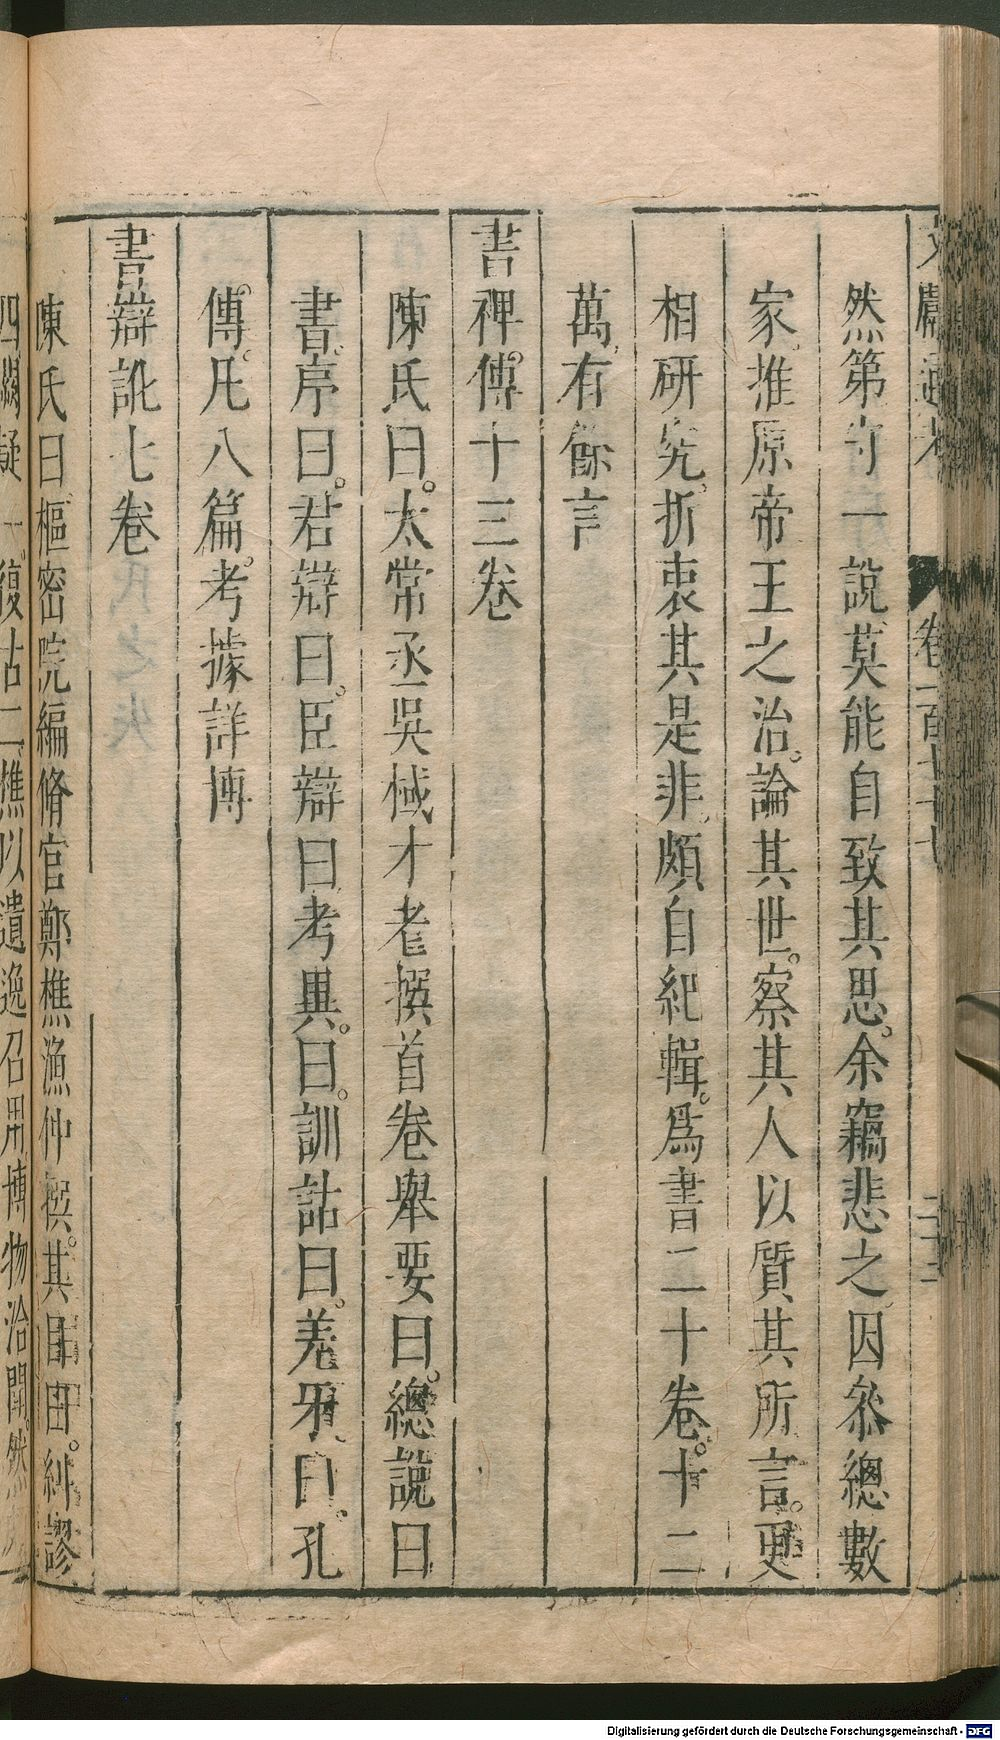 文獻通考 卷一百七十七 二十三
然第守一說莫能自致其思。余竊悲之因叅總數
家。推原帝王之治。論其世。察其人以質其所言。更
相研究折衷其是非頗自紀輯。爲書二十卷。十二
萬有餘言
書裨傳十三卷
陳氏曰。太常丞吳棫才老撰首卷舉要曰。總說曰
書。序曰。君辯曰。臣辯曰考異。曰。訓詁曰。差牙曰。孔
傳。凡八篇。考據詳博
書辯訛七卷
陳氏曰樞密院編脩官鄭樵漁仲撰。其目曰。糾謬
四闕疑一。復古二樵以遺逸召用博物洽聞。然
Digitalisierung gefördert durch die Deutsche Forschungsgemeinschaft - DFG